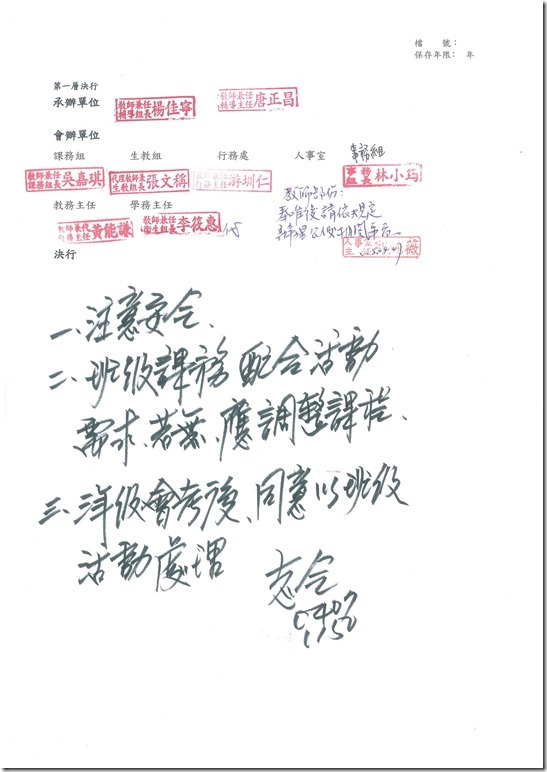 檔　　號：
保存年限：　年
第一層決行
承辦單位　教師兼任輔導組長楊佳寧　教師兼任輔導主任唐正昌
會辦單位
課務組　生教組　行務處　人事室　事務組
教師兼任課務組長吳嘉琪　代理教師兼任生教組長張文稱　教師兼任主任游圳仁　事務組長林小筠
教師部份：
奉准後請依規定
教務主任　學務主任
教師兼代主任黃能謙　教師兼任衛生組長李筱惠
人事室主任　薇
決行
一、注意安全、
二、班級課務配合活動
需求、若無、應調整課程、
三、年級會考後、同意以班級
活動處理
志全
0407
1152